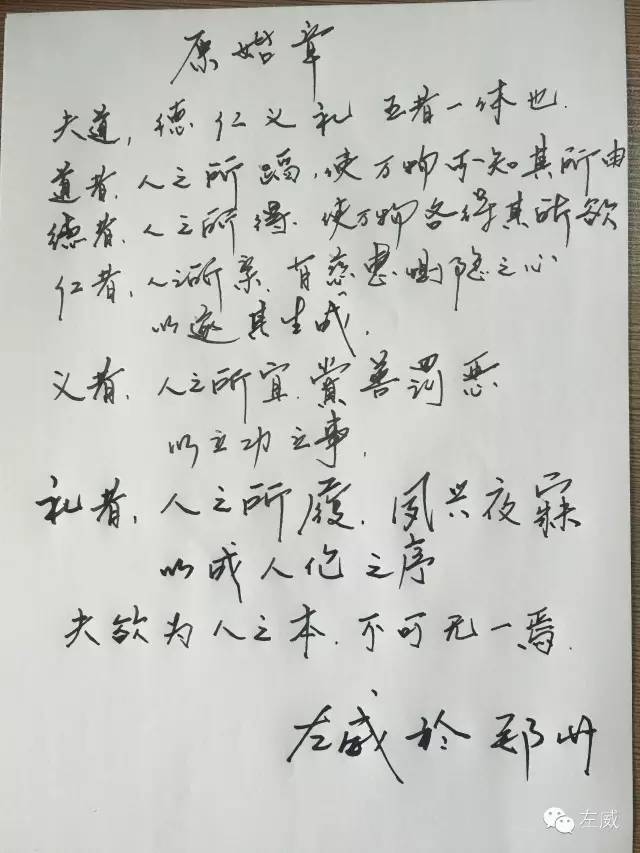 原始章
夫道，德仁义礼 五者一体也.
道者，人之所蹈，使万物不知其所由
德者，人之所得.使万物各得其所欲
仁者，人之所亲.有慈惠恻隐之心
以遂其生成.
义者，人之所宜.赏善罚恶
以立功立事.
礼者，人之所履.夙兴夜寐
以成人伦之序
夫欲为人之本.不可无一焉.
左威於郑州
左威